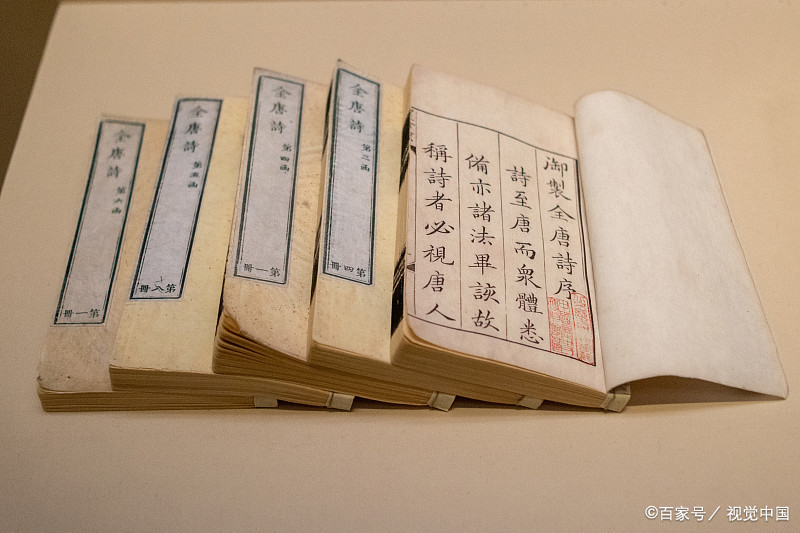 御製全唐詩序
詩至唐而衆體悉
備亦諸法畢該故
稱詩者必視唐人
全唐詩
第三函
第四冊
全唐詩
第四函
第一冊
全唐詩
第五函
第八冊
全唐詩
第六函
第一冊
©百家号／视觉中国